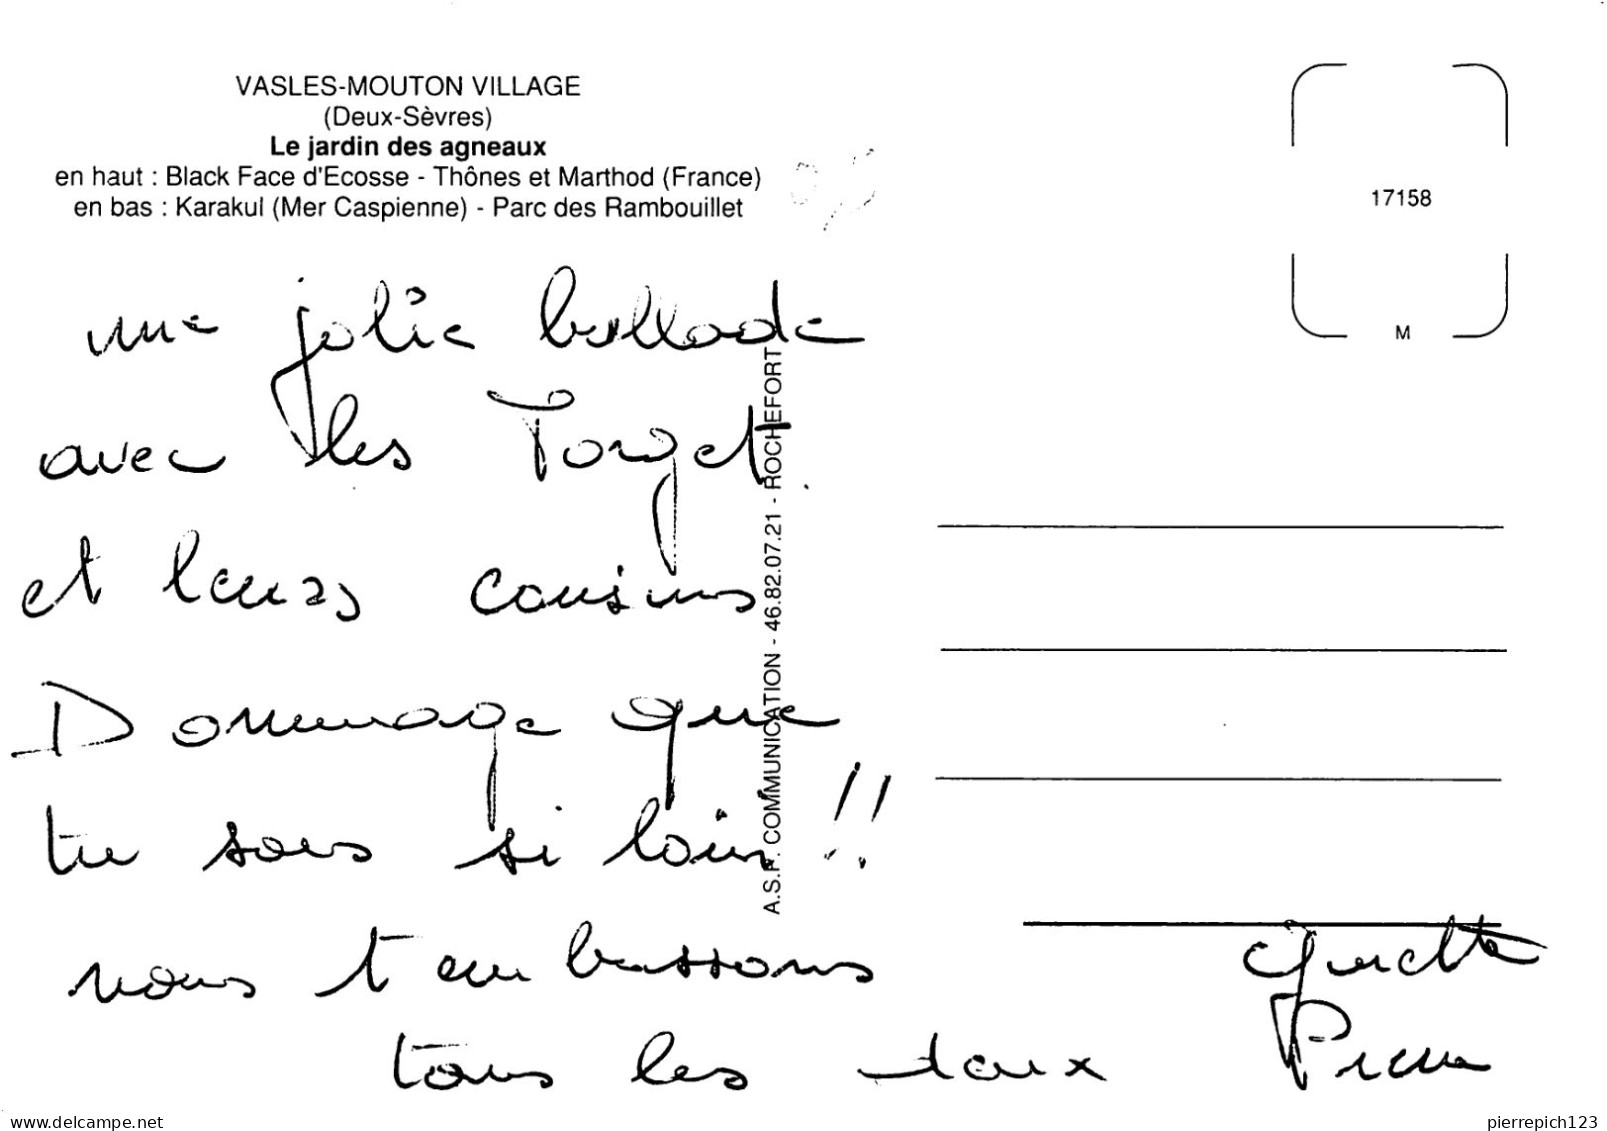 VASLES-MOUTON VILLAGE
(Deux-Sèvres)
Le jardin des agneaux
en haut : Black Face d'Ecosse - Thônes et Marthod (France)
en bas : Karakul (Mer Caspienne) - Parc des Rambouillet
17158
M
une jolie ballade
avec les Forget
et leurs cousins
Dommage que
tu sois si loin !!
nous t'embrassons
tous les deux
Pierre
A.S.P. COMMUNICATION - 46.82.07.21 - ROCHEFORT
www.delcampe.net
pierrepich123